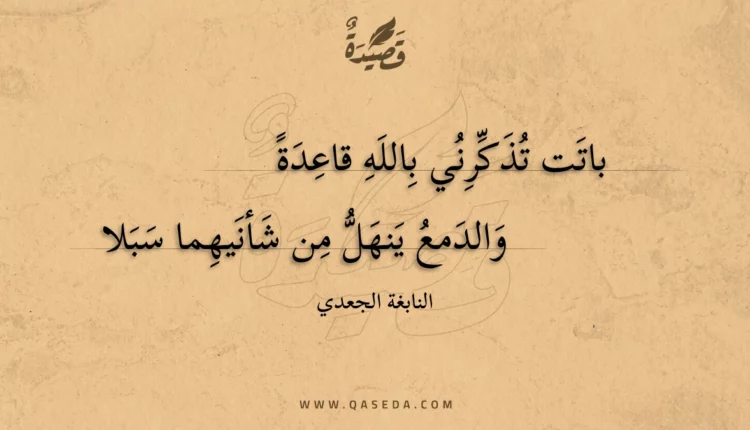 قَصِيْدَةٌ
باتَت تُذَكِّرُنِي بِاللَهِ قاعِدَةً
وَالدَمعُ يَنهَلُّ مِن شَأنَيهِما سَبَلا
النابغة الجعدي
WWW.QASEDA.COM